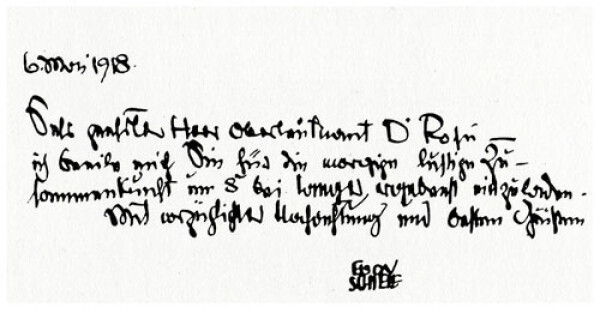 6. Mai 1918.
Sehr geehrter Herr Oberleutnant Dr
ich beeile mich Sie für die morgige lustige Zu-
sammenkunft um 8h bei ergebenst einzuladen.
Mit vorzüglicher Hochachtung und besten Grüßen
EGON
SCHIELE